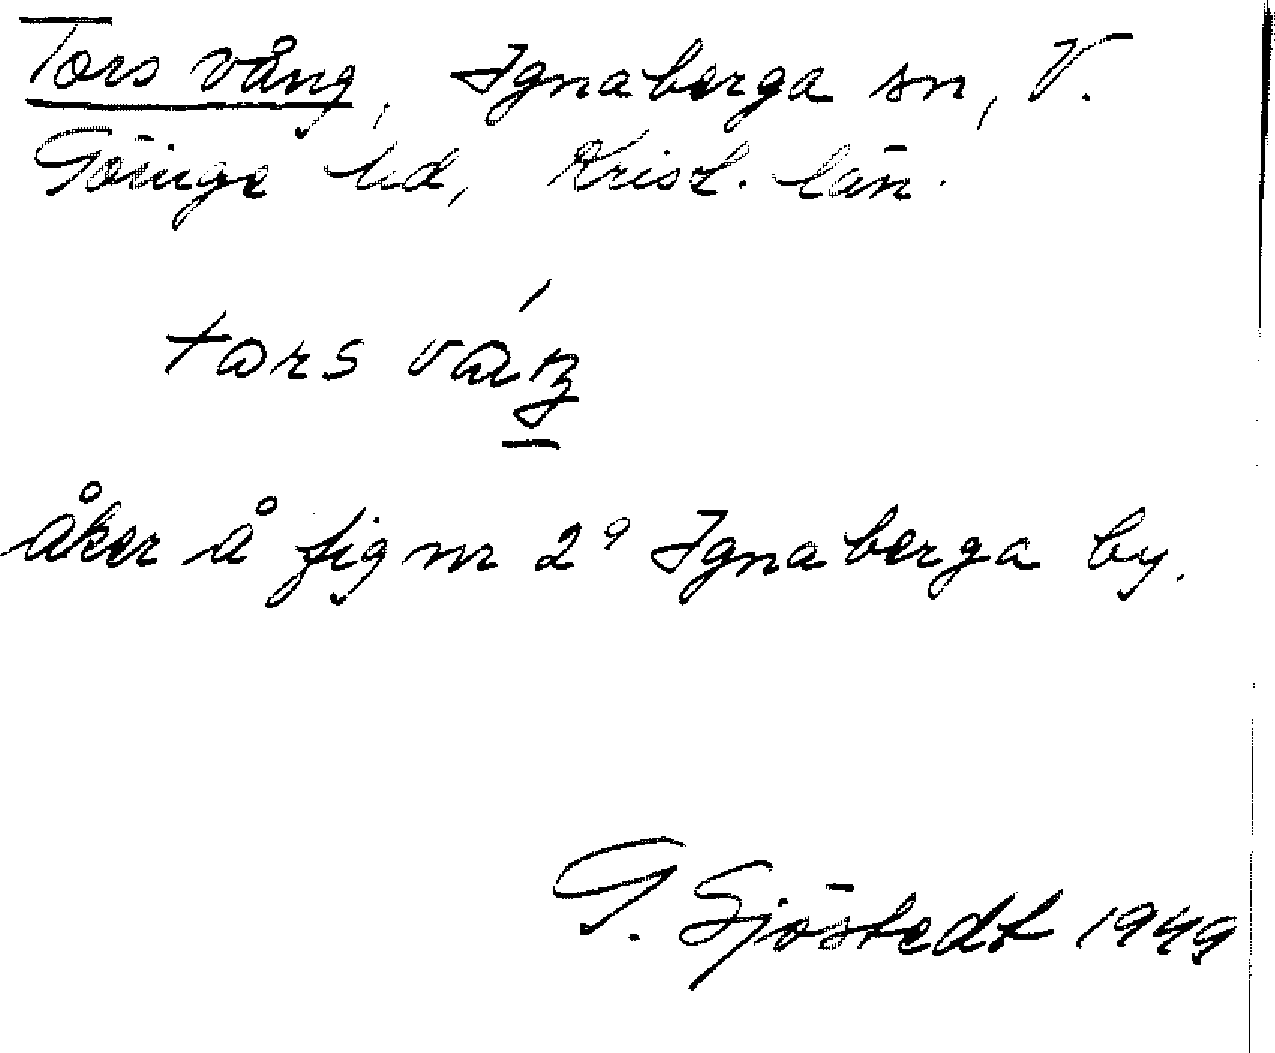 Tors vång, Ignaberga sn, V.
Göinge hd, Krist. län.
åker å fig nr 2º Ignaberga by.
G. Sjöstedt 1949